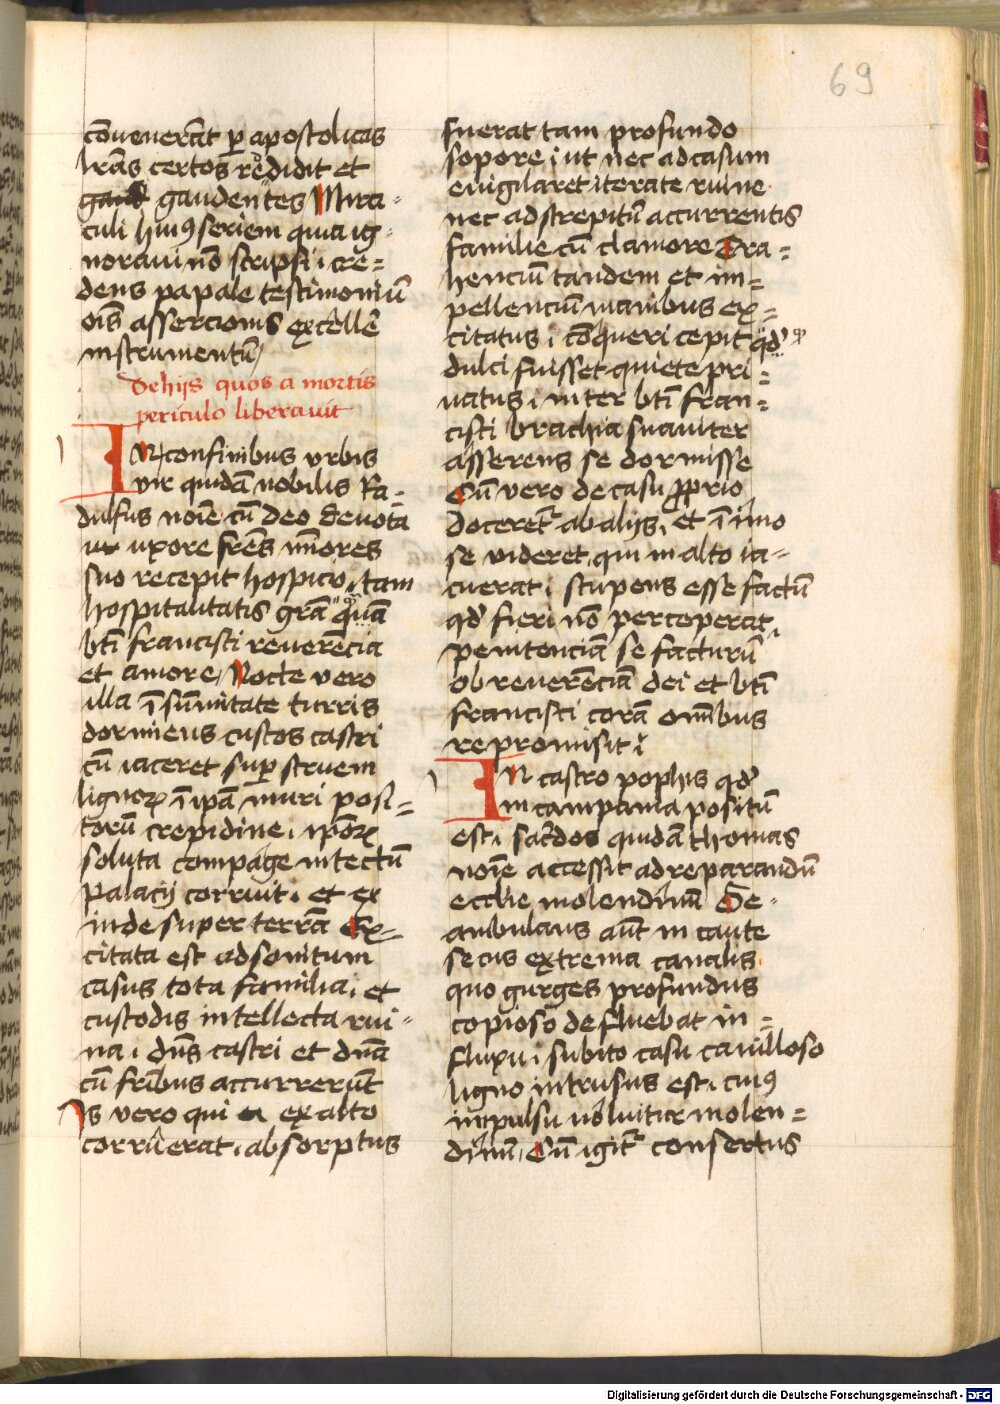 69
cōuenerāt ꝑ apostolicas
lr̄as certos reddidit et
gaud gaudentes Mira-
culi hui9 seriem quia ig-
noraui nō scripsi, cre=
dens papale testimoniū
oīs assercionis excellē
instrumentū /
De hijs quos a mortis
periculo liberauit
IN confinibus vrbis
vir quidā nobilis Ra-
dulfus noīe cū deo deuota
ux uxore frēs mīores
suo recepit hospicio, tam
hospitalitatis grā quā
bti francisci reuerēcia
et amore, Nocte vero
illa ī sūmitate turris
dormiens custos castri
cū iaceret suꝑ struem
lignoꝝ ī ipā muri posi=
torū crepidine, ipōꝝ
soluta compage in tectū
palacij corruit, et ex
inde super terrā Ex-
citata est ad sonitum
casus tota familia, et
custodis intellecta rui-
na, dn̄s castri et dn̄a
cū fribus accurrerūt
Is vero qui a ex alto
corruerat, absorptus
fuerat tam profundo
sopore, ut nec ad casum
euigilaret iterate ruine
nec ad strepitū accurrentis
familie cū clamore Tra=
henciū tandem et im=
pellenciū manibus ex-
citatus, cōqueri cepit qd'
dulci fuisset quiete pri-
uatus, inter bti fran-
cisci brachia suauiter
asserens se dormisse
Cū vero de casu ꝓprio
doceretr ab alijs, et ī imo
se videret, qui in alto ia-
cuerat, stupens esse factū
qd' fieri nō perceperat,
penitenciā se facturū
ob reuerēciā dei et bti
francisci corā omībus
repromisit,
IN castro pophis qd'
in campania positū
est, sacdos quidā thomas
noīe accessit ad reparandū
ecclie molendinū De-
ambulans aūt incaute
secus extrema canalis
quo gurges profundus
copioso defluebat in=
fluxu, subito casu cauilloso
ligno intrusus est, cui9
impulsu uoluitur molen=
dinū, Cū igitr consertus
Digitalisierung gefördert durch die Deutsche Forschungsgemeinschaft - DFG